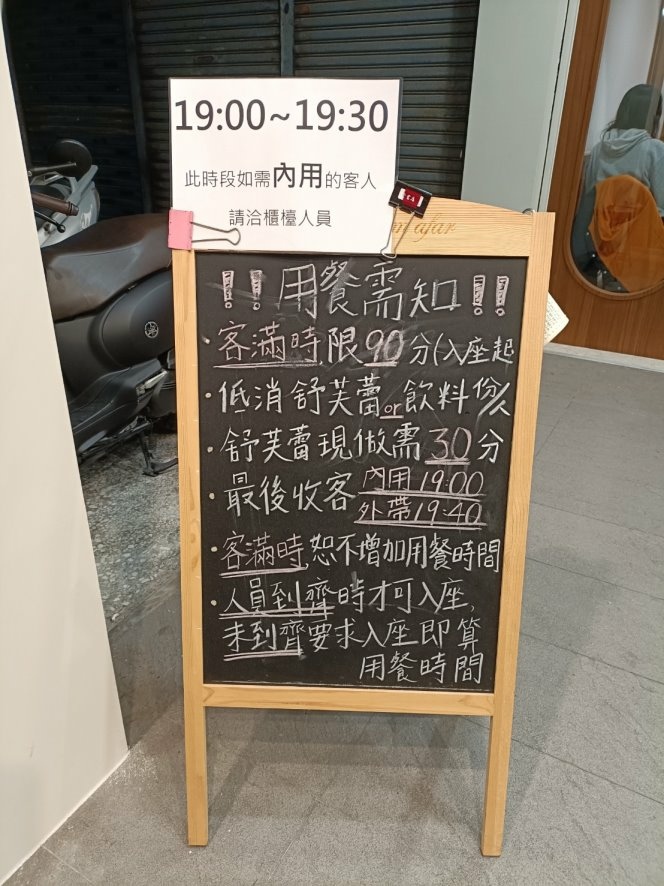 19:00~19:30
此時段如需內用的客人
請洽櫃檯人員
afar
!! 用餐需知 !!
・客滿時限90分(入座起
・低消舒芙蕾or飲料 份/人
・舒芙蕾現做需30分
・最後收客 內用19:00
外帶19:40
・客滿時,恕不增加用餐時間
・人員到齊時才可入座,
未到齊要求入座即算
用餐時間